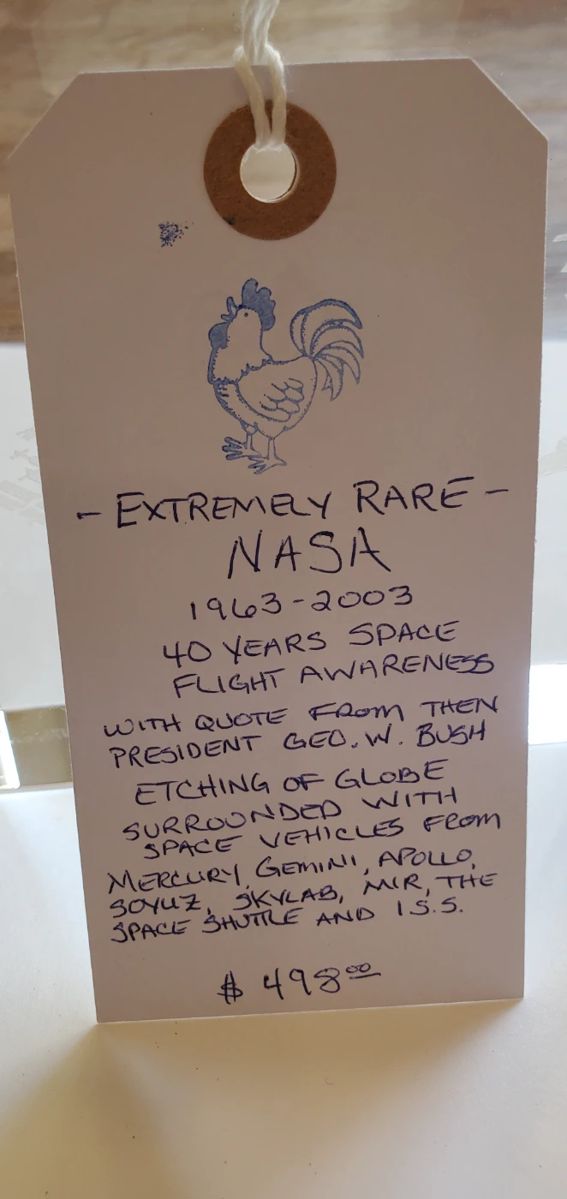 - EXTREMELY RARE -
NASA
1963-2003
40 YEARS SPACE
FLIGHT AWARENESS
WITH QUOTE FROM THEN
PRESIDENT GEO. W. BUSH
ETCHING OF GLOBE
SURROUNDED WITH
SPACE VEHICLES FROM
MERCURY, GEMINI, APOLLO,
SOYUZ, SKYLAB, MIR, THE
SPACE SHUTTLE AND I.S.S.
$ 498.00